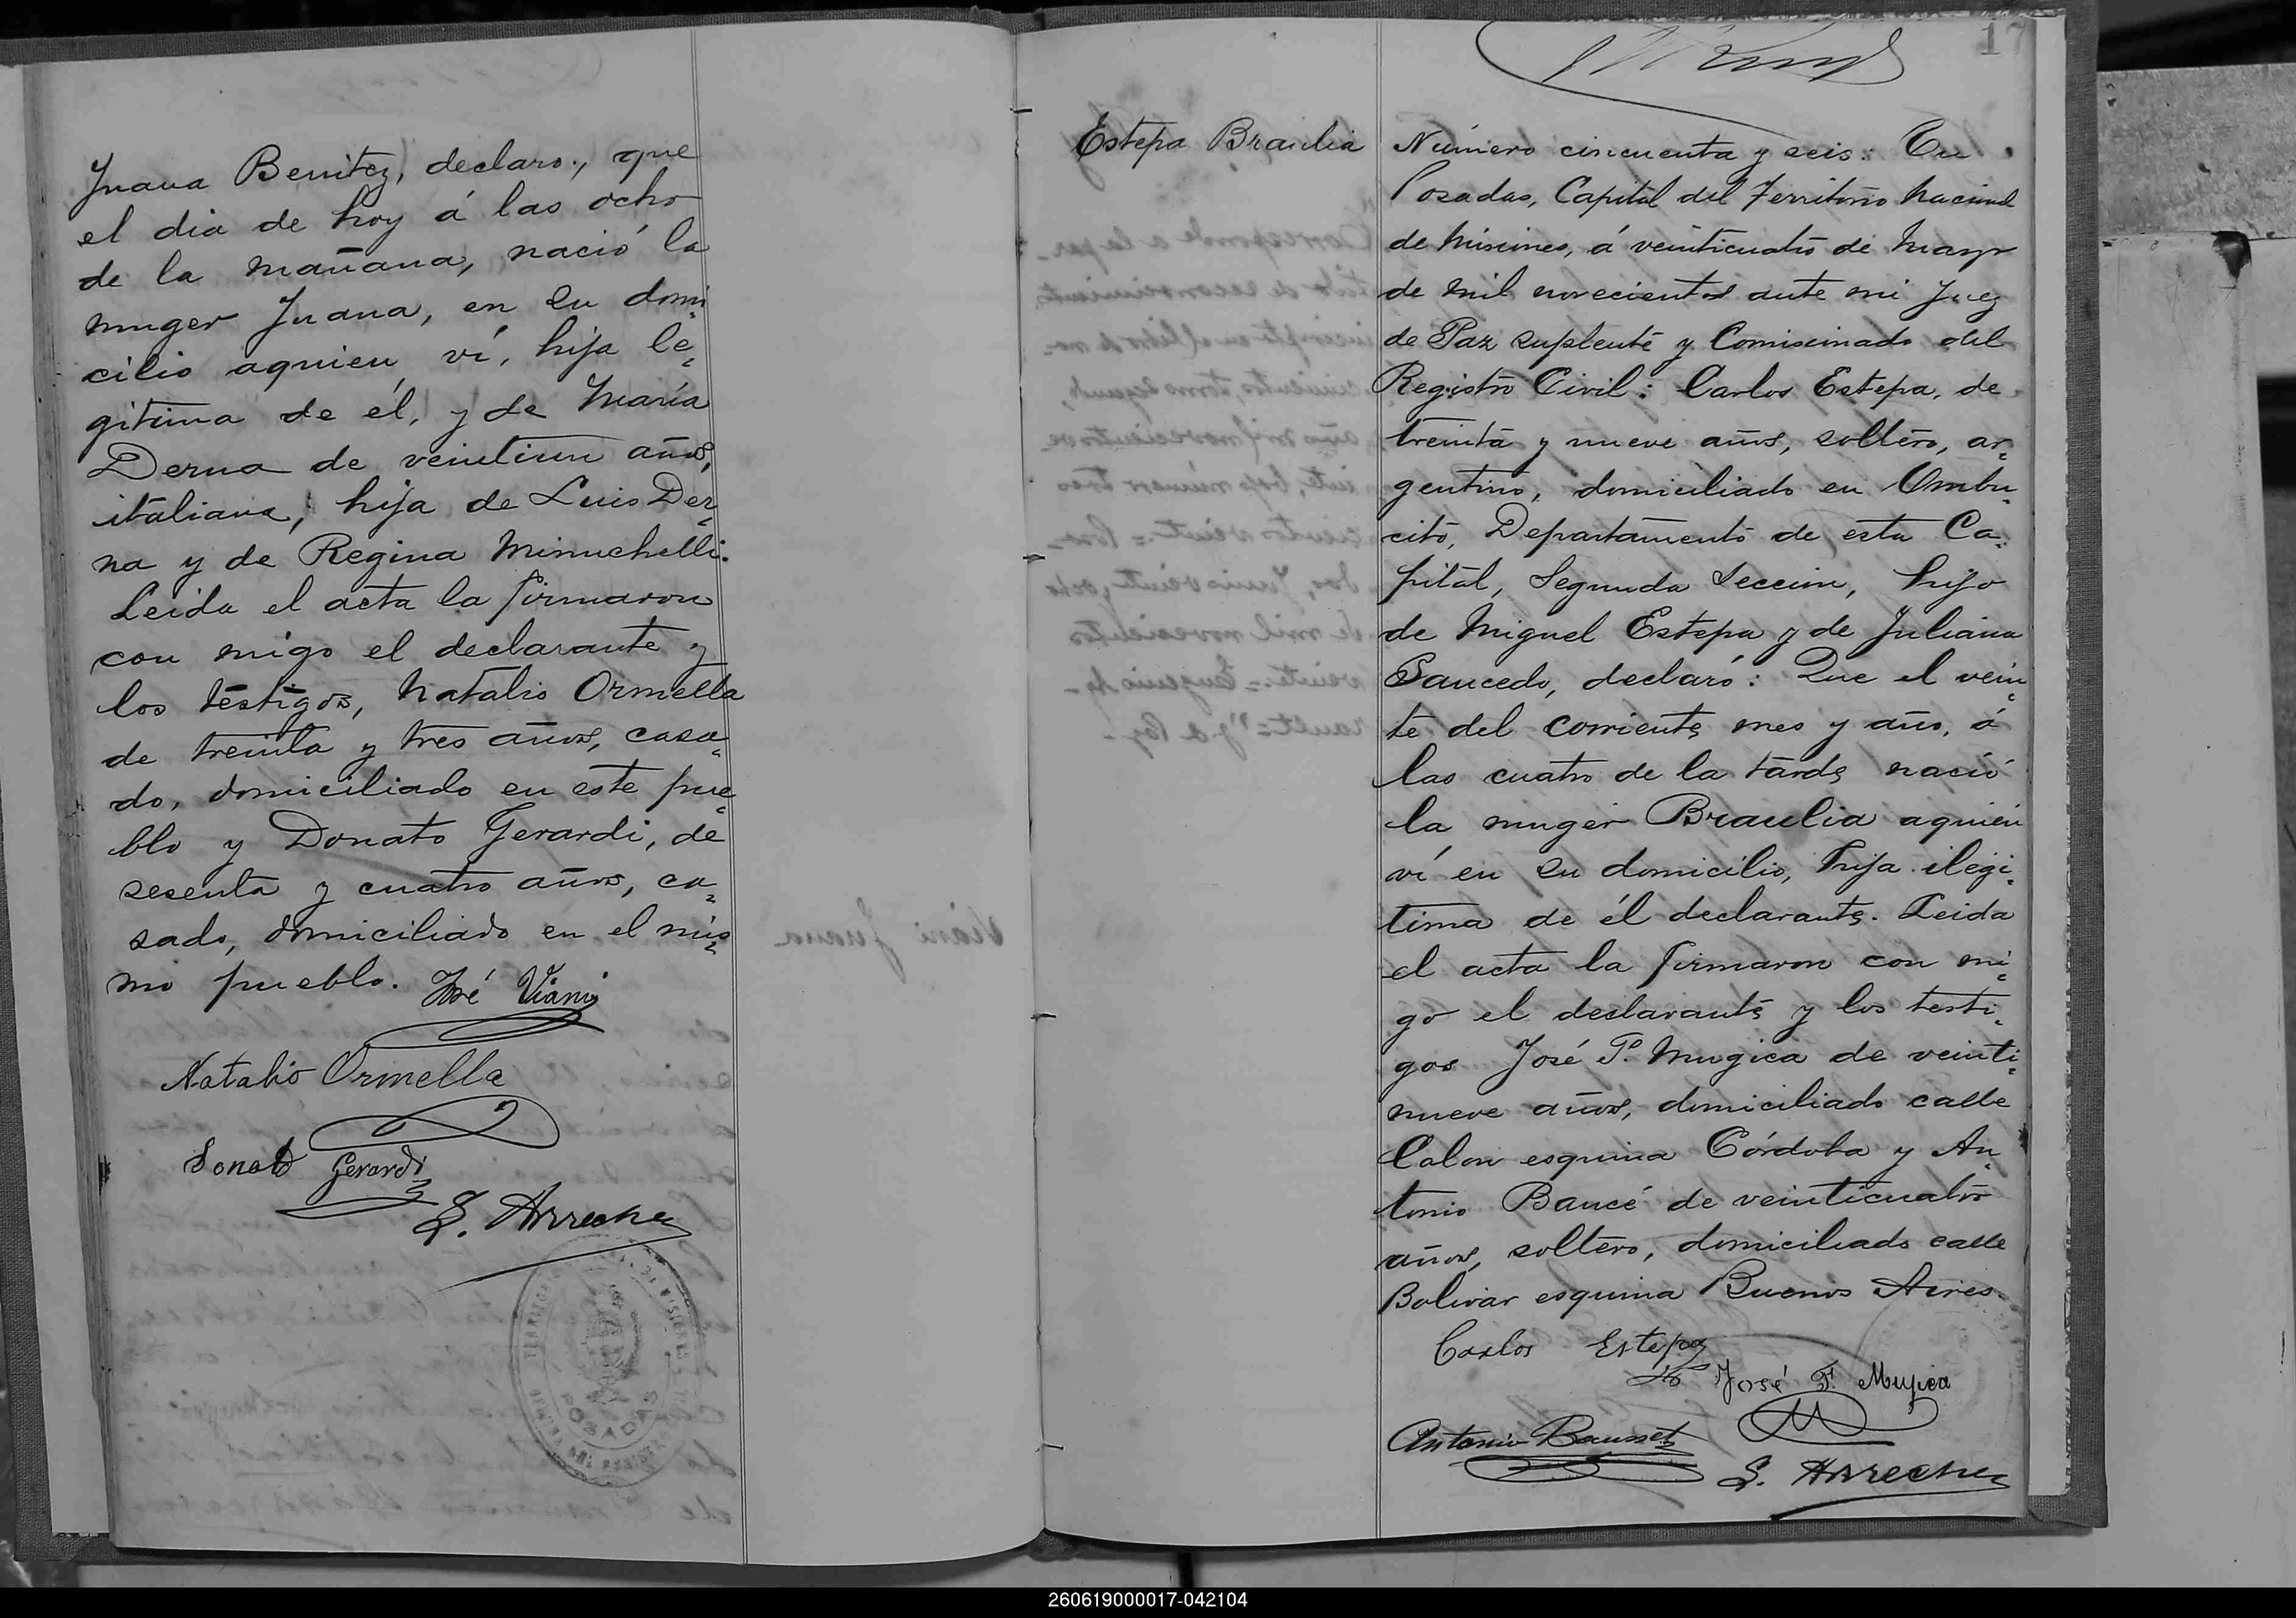 Juana Benitez, declaro, que
el dia de hoy á las ocho
de la mañana, nació la
muger Juana, en su domi-
cilio aquien ví, hija le-
gitima de él, y de María
Derna de veintiun años,
italiana, hija de Luis Der-
na y de Regina Minuchelli.
Leida el acta la firmaron
con migo el declarante y
los testigos, Natalio Ormella
de treinta y tres años, casa-
do, domiciliado en este pue-
blo y Donato Gerardi, de
sesenta y cuatro años, ca-
sado, domiciliado en el mis-
mo pueblo. José Viani
Natalio Ormella
Donato Gerardi
L. Arrechea
POSADAS
17
Estepa Braulia
Número cincuenta y seis: En
Posadas, Capital del Territorio Nacional
de Misiones, á veinticuatro de Mayo
de mil novecientos ante mi Juez
de Paz suplente y Comisionado del
Registro Civil: Carlos Estepa, de
treinta y nueve años, soltero, ar-
gentino, domiciliado en Ombu-
cito, Departamento de esta Ca-
pital, Segunda Seccion, hijo
de Miguel Estepa y de Juliana
Saucedo, declaró: Que el vein-
te del corriente mes y año, á
las cuatro de la tarde nació
la muger Braulia aquien
ví en su domicilio, hija ilegi-
tima de él declarante. Leida
el acta la firmaron con mi-
go el declarante y los testi-
gos José F. Mugica de veinti-
nueve años, domiciliado calle
Colon esquina Córdoba y An-
tonio Baucé de veinticuatro
años, soltero, domiciliado calle
Bolivar esquina Buenos Aires.
Carlos Estepa
José F. Mujica
Antonio Bausset
L. Arrechea
260619000017-042104